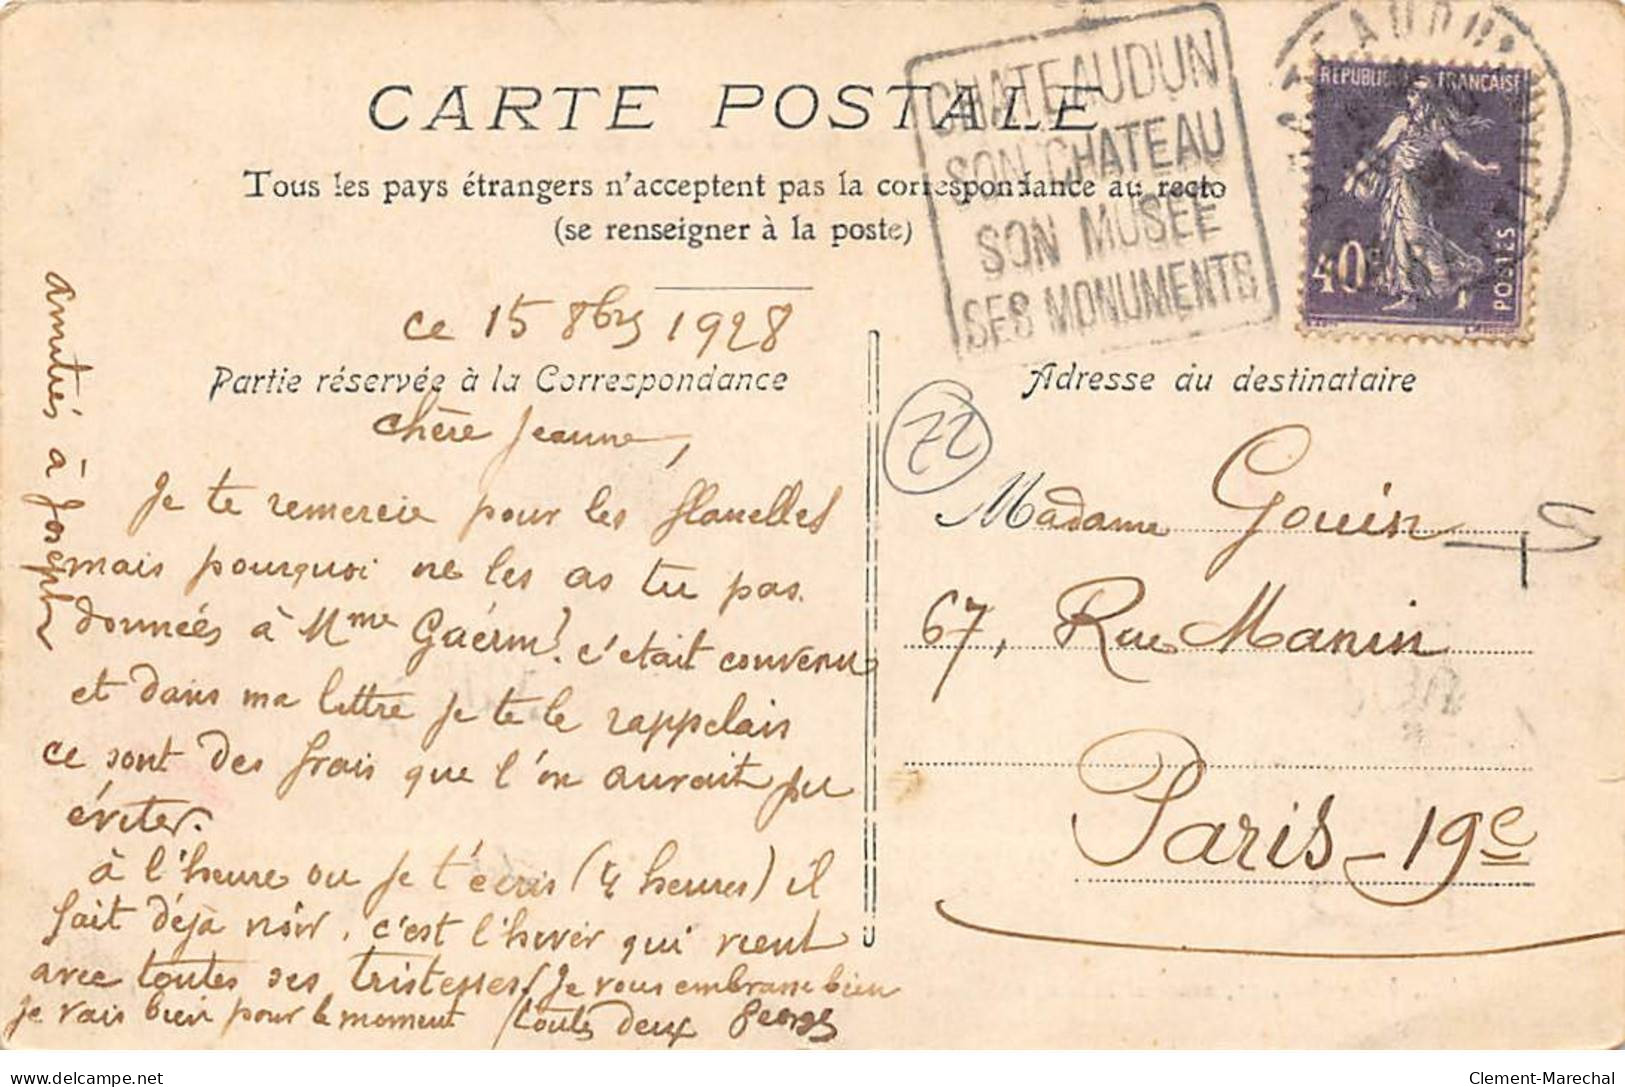 CARTE POSTALE
Tous les pays étrangers n'acceptent pas la correspondance au recto
(se renseigner à la poste)
CHATEAUDUN
SON CHATEAU
SON MUSÉE
SES MONUMENTS
CHATEAUDUN
REPUBLIQUE FRANÇAISE
40c
POSTES
ce 15 8bre 1928
Partie réservée à la Correspondance
chère Jeanne,
Je te remercie pour les flanelles
mais pourquoi ne les as tu pas
données à Mme Guérin? c'était convenu
et dans ma lettre je te le rappelais
ce sont des frais que l'on aurait pu
éviter.
à l'heure ou je t'écris (4 heures) il
fait déjà noir, c'est l'hiver qui vient
avec toutes ses tristesses! Je vous embrasse bien
je vais bien pour le moment toutes deux Georges
amitiés à Joseph
Adresse du destinataire
72
Madame Gouin
67, Rue Manin
Paris-19e
delcampe.net
Clement-Marechal